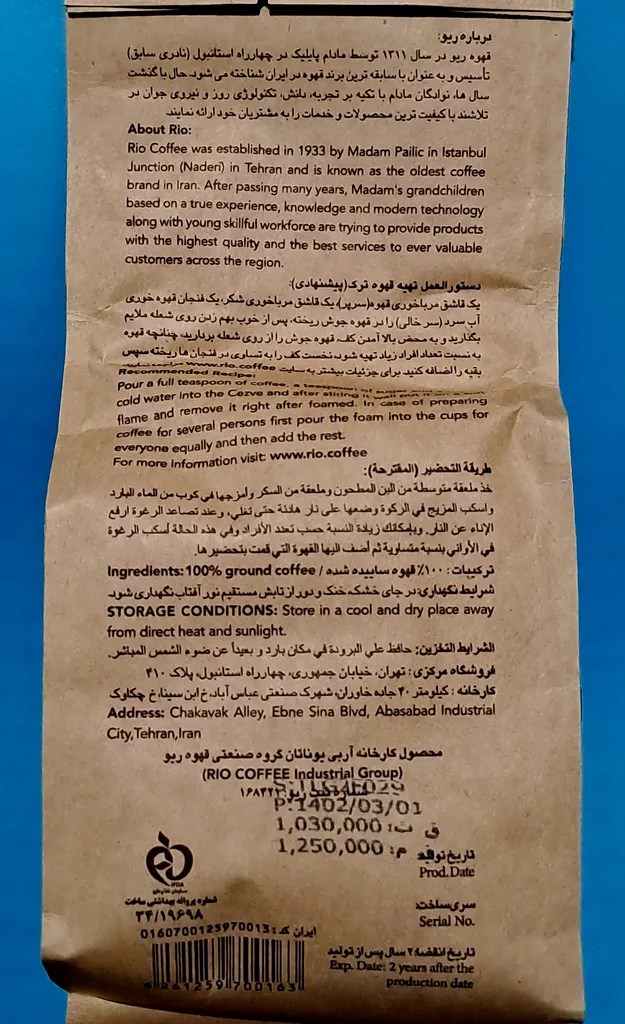 درباره ریو:
قهوه ریو در سال ۱۳۱۱ توسط مادام پایلیک در چهارراه استانبول (نادری سابق)
تأسیس و به عنوان با سابقه ترین برند قهوه در ایران شناخته می شود. حال با گذشت
سال ها، نوادگان مادام با تکیه بر تجربه، دانش، تکنولوژی روز و نیروی جوان در
تلاشند با کیفیت ترین محصولات و خدمات را به مشتریان خود ارائه نمایند.
About Rio:
Rio Coffee was established in 1933 by Madam Pailic in Istanbul
Junction (Naderi) in Tehran and is known as the oldest coffee
brand in Iran. After passing many years, Madam's grandchildren
based on a true experience, knowledge and modern technology
along with young skillful workforce are trying to provide products
with the highest quality and the best services to ever valuable
customers across the region.
دستورالعمل تهیه قهوه ترک(پیشنهادی):
یک قاشق مرباخوری قهوه(سرپر)، یک قاشق مرباخوری شکر، یک فنجان قهوه خوری
آب سرد (سر خالی) را در قهوه جوش ریخته، پس از خوب بهم زدن روی شعله ملایم
بگذارید و به محض بالا آمدن کف، قهوه جوش را از روی شعله بردارید، چنانچه قهوه
به نسبت تعداد افراد زیاد تهیه شود، نخست کف را به تساوی در فنجان ها ریخته سپس
بقیه را اضافه کنید. برای جزئیات بیشتر به سایت www.rio.coffee
Recommended Recipe:
Pour a full teaspoon of coffee, a teaspoon of
cold water into the Cezve and after stirring it well put it on a
flame and remove it right after foamed. In case of preparing
coffee for several persons first pour the foam into the cups for
everyone equally and then add the rest.
For more information visit: www.rio.coffee
طريقة التحضير (المقترحة):
خذ ملعقة متوسطة من البن المطحون وملعقة من السكر وامزجها في كوب من الماء البارد
واسكب المزيج في الركوة وضعها على نار هادئة حتى تغلي، وعند تصاعد الرغوة ارفع
الإناء عن النار. وبإمكانك زيادة النسبة حسب تعدد الأفراد وفي هذه الحالة أسكب الرغوة
في الأواني بنسبة متساوية ثم أضف اليها القهوة التي قمت بتحضيرها.
ترکیبات: ۱۰۰٪ قهوه ساییده شده / Ingredients: 100% ground coffee
شرایط نگهداری: در جای خشک، خنک و دور از تابش مستقیم نور آفتاب نگهداری شود.
STORAGE CONDITIONS: Store in a cool and dry place away
from direct heat and sunlight.
الشرايط التخزين: حافظ علي البرودة في مكان بارد و بعيداً عن ضوء الشمس المباشر.
فروشگاه مرکزی: تهران، خیابان جمهوری، چهارراه استانبول، پلاک ۴۱۰
کارخانه: کیلومتر ۴۰ جاده خاوران، شهرک صنعتی عباس آباد، خ ابن سینا، خ چکاوک
Address: Chakavak Alley, Ebne Sina Blvd, Abasabad Industrial
City,Tehran,Iran
محصول کارخانه آربی یوناتان گروه صنعتی قهوه ریو
(RIO COFFEE Industrial Group)
P:1402/03/01
ق ت: 1,030,000
م: 1,250,000
تاریخ تولید
Prod. Date
سری ساخت:
Serial No.
تاریخ انقضا: ۲ سال پس از تولید
Exp. Date: 2 years after the
production date
IFDA
سازمان غذا و دارو
شماره پروانه بهداشتی ساخت
۳۴/۱۹۶۹۸
ایران کد: 0160700125970013
6261259700163